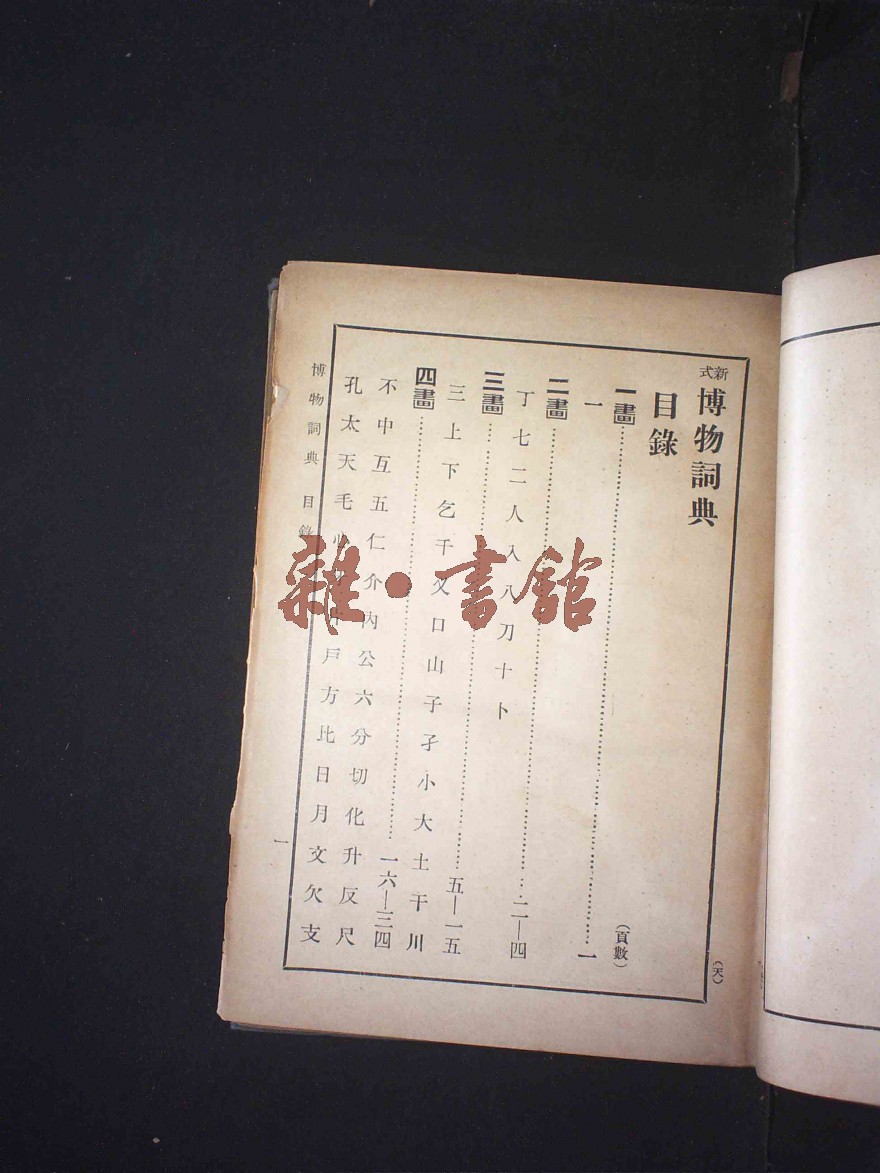 新式 博物詞典
目錄
(頁數)
一畫……一
一
二畫……二—四
丁七二人入八刀十卜
三畫……五—一五
三上下乞千叉口山子孑小大土干川
四畫……一六—三四
不中互五仁介內公六分切化升反尺
孔太天毛戶方比日月文欠支
博物詞典 目錄
一
(天)
雜·書館